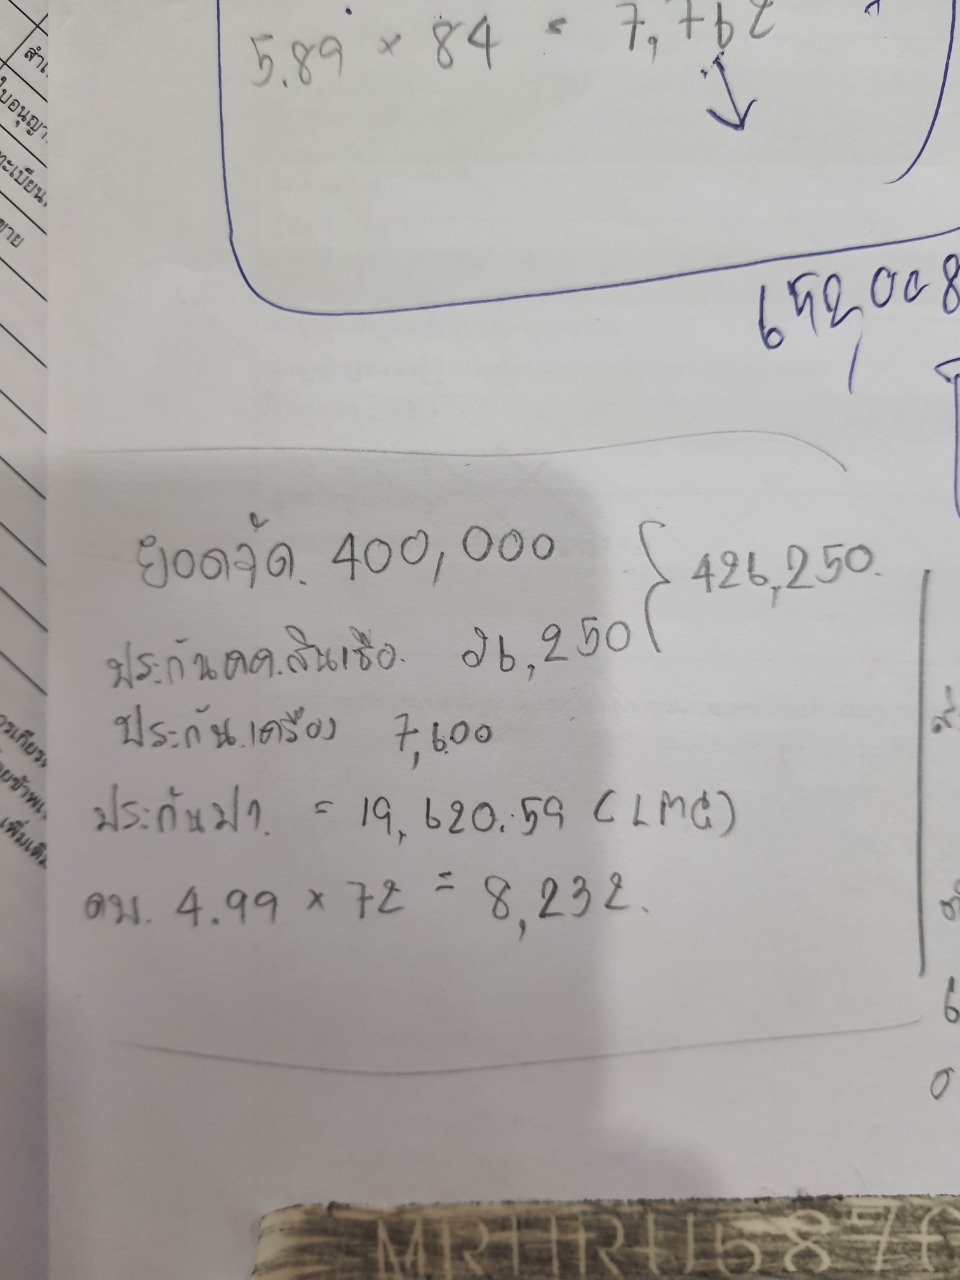 สำเ
ใบอนุญา
ทะเบียน
ขาย
5.89 × 84 = 7,762
652,008
ยอดจัด. 400,000
426,250.
ประกันคค.สินเชื่อ. 26,250
ประกัน.เครื่อง 7,600
ประกันป1. = 19,620.59 (LMG)
ดบ. 4.99 × 72 = 8,232.
เพิ่มเติม